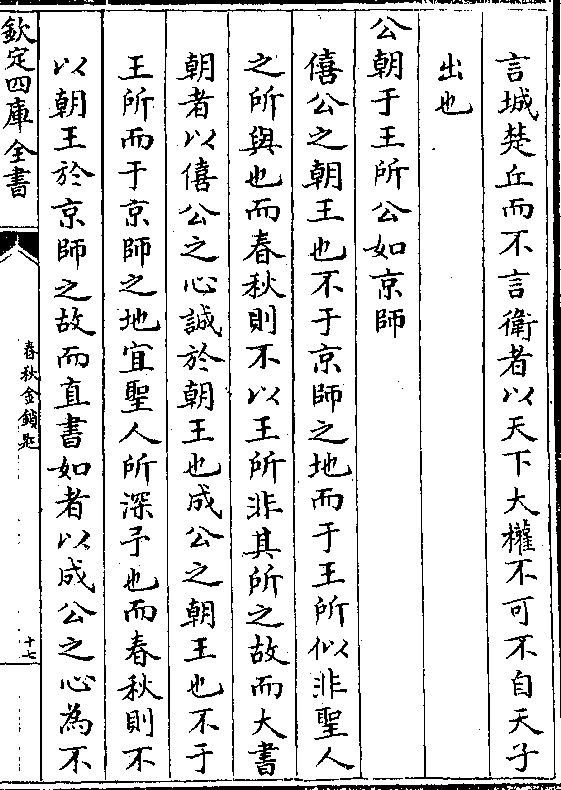 言城楚丘而不言衛者以天下大權不可不自天子
出也
公朝于王所公如京師
僖公之朝王也不于京師之地而于王所似非聖人
之所與也而春秋則不以王所非其所之故而大書
朝者以僖公之心誠於朝王也成公之朝王也不于
王所而于京師之地宜聖人所深予也而春秋則不
以朝王於京師之故而直書如者以成公之心為不
欽定四庫全書
春秋金鎖匙
十七